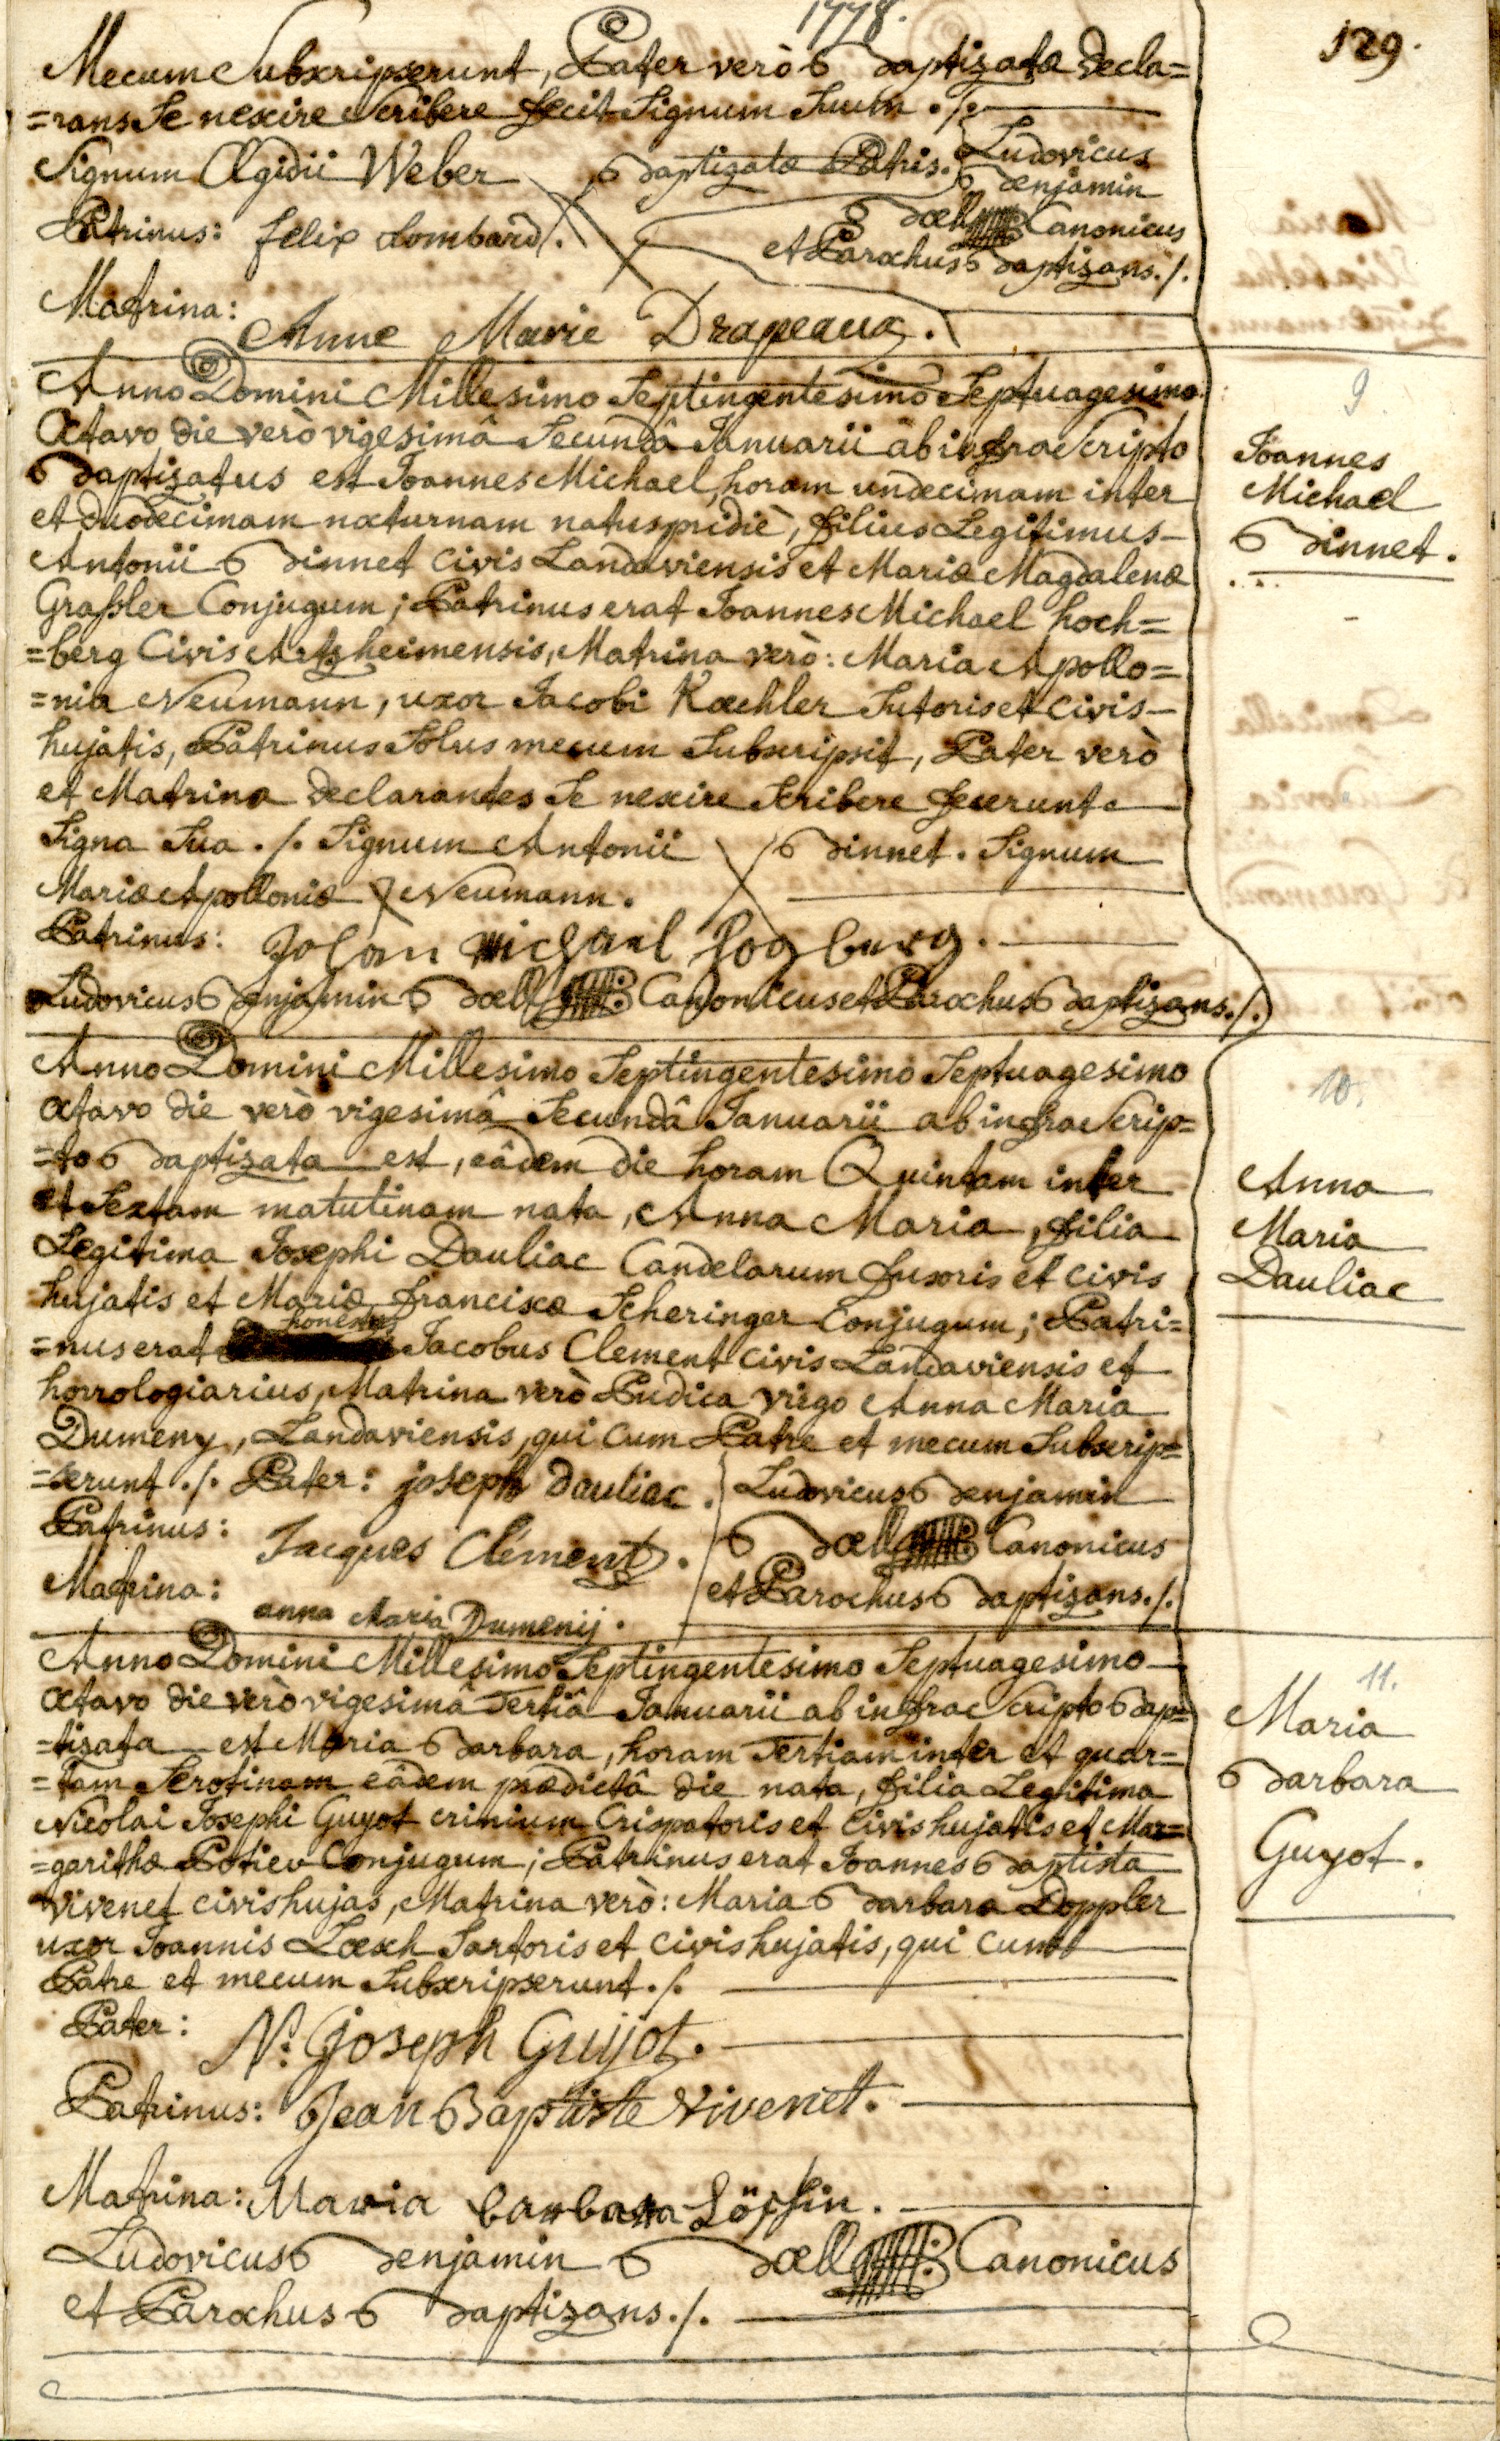 1778.
129.
Mecum Subscripserunt, Pater verò Baptizatæ decla=
=rans Se nescire Scribere fecit Signum Suum ./.
Signum Ægidii Weber Baptizatæ Patris.
Ludovicus
Benjamin
Patrinus: felix Lombard/.
Boell Canonicus
et Parochus Baptizans./.
Matrina:
Anne Marie Drapeaux.
Anno Domini Millesimo Septingentesimo Septuagesimo
Octavo die verò vigesimâ Secundâ Januarii ab infra Scripto
Baptizatus est Joannes Michael, horam undecimam inter
et duodecimam nocturnam natus pridiè, filius Legitimus
Antonii Binnet Civis Landaviensis et Mariæ Magdalenæ
Graßler Conjugum; Patrinus erat Joannes Michael hoch=
=berg Civis Artzheimensis, Matrina verò: Maria Apollo=
=nia Neumann, uxor Jacobi Kœhler Sutoris et Civis
hujatis, Patrinus Solus mecum Subscripsit, Pater verò
et Matrina declarantes Se nescire Scribere fecerunt
Signa Sua ./. Signum Antonii Binnet. Signum
Mariæ Apolloniæ Neumann.
Patrinus: Johann Michael Hogburg.
Ludovicus Benjamin Boell Canonicus et Parochus Baptizans./.
9
Joannes
Michael
Binnet.
Anno Domini Millesimo Septingentesimo Septuagesimo
Octavo die verò vigesimâ Secundâ Januarii ab infra Scrip=
=to Baptizata est, eâdem die horam Quintam inter
et Sextam matutinam nata, Anna Maria, filia
Legitima Josephi Dauliac Candelarum fusoris et Civis
hujatis et Mariæ franciscæ Scheringer Conjugum; Patri=
honestus
=nus erat Jacobus Clement Civis Landaviensis et
horrologiarius, Matrina verò Pudica virgo Anna Maria
Dumeny, Landaviensis, qui Cum Patre et mecum Subscrip=
=serunt ./. Pater: joseph dauliac.
Ludovicus Benjamin
Patrinus: Jacques Clément.
Boell Canonicus
Matrina: anna Maria Dumenij.
et Parochus Baptizans./.
10.
Anna
Maria
Dauliac
Anno Domini Millesimo Septingentesimo Septuagesimo
Octavo die verò vigesimâ Tertiâ Januarii ab infra Scripto Bap=
=tizata est Maria Barbara, horam Tertiam inter et quar=
=tam Serotinam eâdem prædictâ die nata, filia Legitima
Nicolai Josephi Guyot crinium Crispatoris et Civis hujatis et Mar=
=garithæ Potiev Conjugum; Patrinus erat Joannes Baptista
vivenet civis hujas, Matrina verò: Maria Barbara Doppler
uxor Joannis Lœsch Sartoris et Civis hujatis, qui Cum
Patre et mecum Subscripserunt ./.
Pater: N: Joseph Guijot.
Patrinus: Jean Baptiste Vivenet.
Matrina: Maria barbara Löschin.
Ludovicus Benjamin Boell Canonicus
et Parochus Baptizans./.
11.
Maria
Barbara
Guyot.